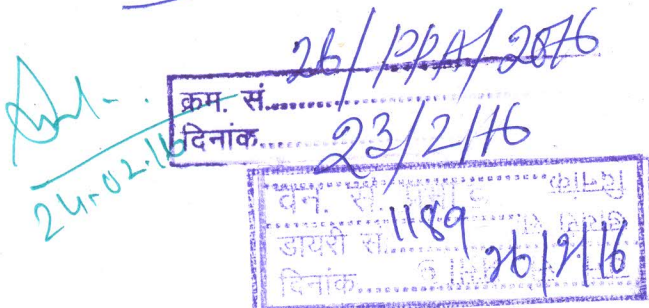 क्रम. सं. 26/PPA/2016
दिनांक 23/2/16
24.02.16
डायरी सं. 1189
दिनांक 26/2/16